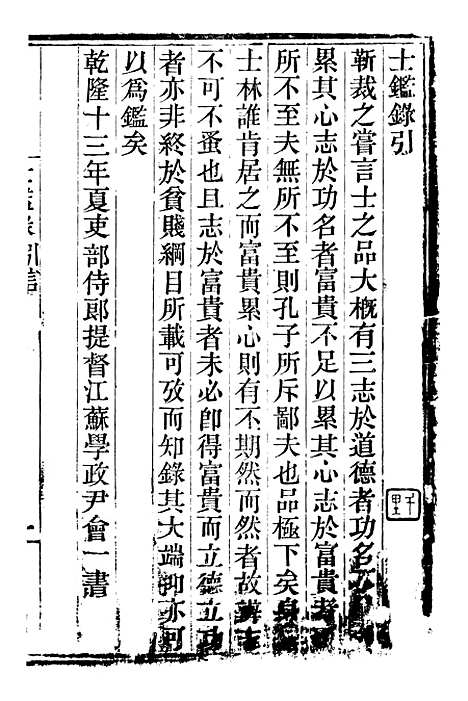 士鑑錄引
靳裁之嘗言士之品大概有三志於道德者功名不
累其心志於功名者富貴不足以累其心志於富貴者
所不至夫無所不至則孔子所斥鄙夫也品極下矣身
士林誰肯居之而富貴累心則有不期然而然者故辨志
不可不蚤也且志於富貴者未必卽得富貴而立德立功
者亦非終於貧賤綱目所載可攷而知錄其大端抑亦可
以爲鑑矣
乾隆十三年夏吏部侍郎提督江蘇學政尹會一書
士鑑錄引言
一